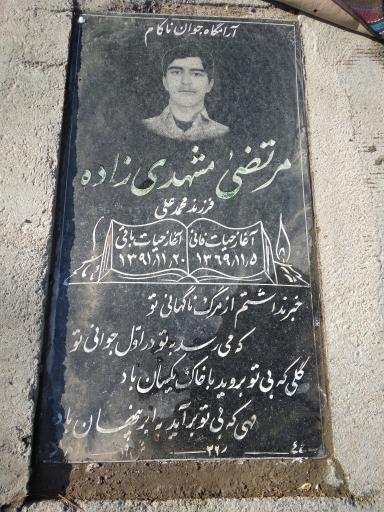 آرامگاه جوان ناکام
مرتضی مشهدی زاده
فرزند محمد علی
آغاز حیات فانی
۱۳۶۹/۱۱/۵
آغاز حیات باقی
۱۳۹۱/۱۱/۲۰
خبر نداشتم از مرگ ناگهانی تو
که می رسد به تو در اوّل جوانی تو
گلی که بی تو بروید با خاک یکسان باد
مهی که بی تو برآید به ابر پنهان باد